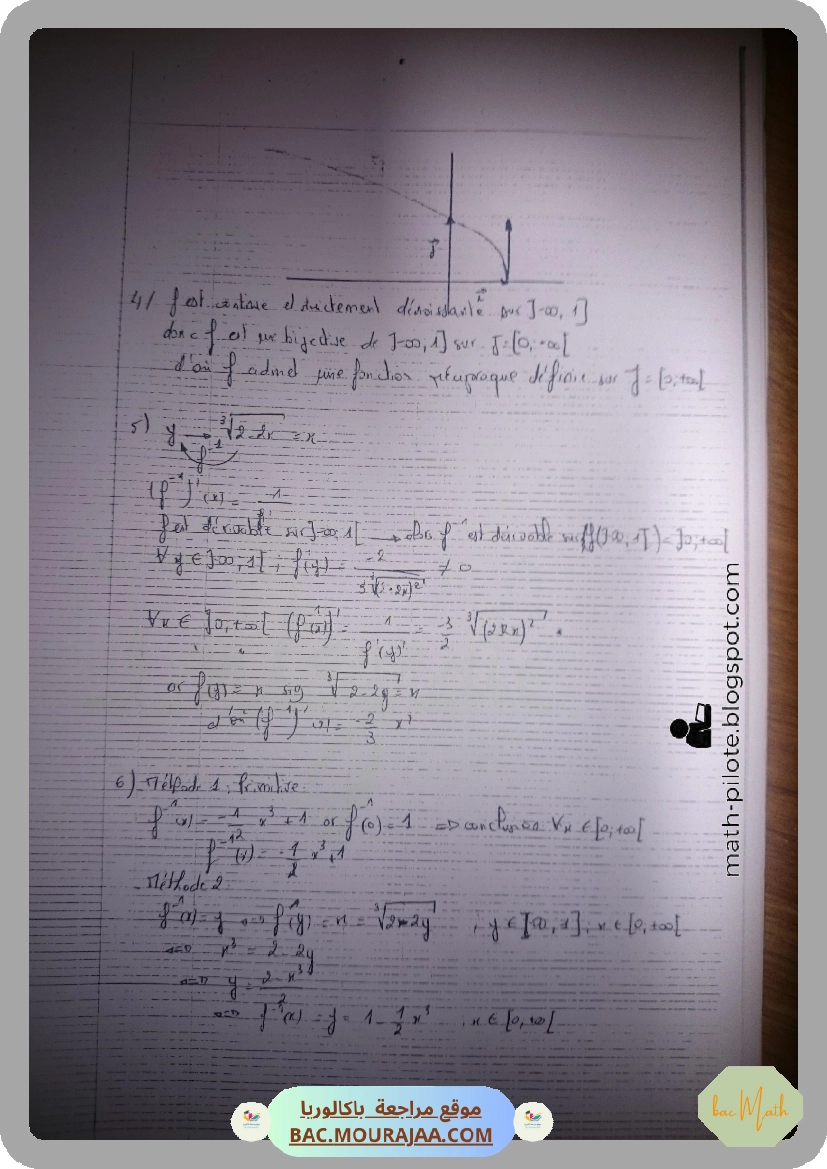 4/ f est continue et strictement décroissante sur ]-∞, 1]
donc f est une bijection de ]-∞, 1] sur J = [0, +∞[
d'où f admet une fonction réciproque définie sur J = [0, +∞[
5) y → ∛(2-2x) = x
f⁻¹
(f⁻¹)'(x) = 1
f est dérivable sur ]-∞, 1[ → donc f⁻¹ est dérivable sur f(]-∞, 1[) = ]0, +∞[
∀ y ∈ ]-∞, 1[, f'(y) = -2 / 3∛(2-2x)² ≠ 0
∀x ∈ ]0, +∞[ (f⁻¹(x))' = 1 / f'(y) = -3/2 ∛(2-2x)²
or f(y) = x sig ∛(2-2y) = x
d'où (f⁻¹)'(x) = -2/3 x²
6) - Méthode 1 : Primitive
f⁻¹(x) = -1/2 x³ + 1 or f⁻¹(0) = 1 ⇒ conclusion ∀x ∈ [0, +∞[
f⁻¹(x) = -1/2 x³ + 1
- Méthode 2
f⁻¹(x) = y ⇔ f(y) = x = ∛(2-2y) , y ∈ ]-∞, 1], x ∈ [0, +∞[
⇔ x³ = 2 - 2y
⇔ y = (2 - x³)/2
⇔ f⁻¹(x) = y = 1 - 1/2 x³ , x ∈ [0, +∞[
math-pilote.blogspot.com
موقع مراجعة باكالوريا
BAC.MOURAJAA.COM
bac Math